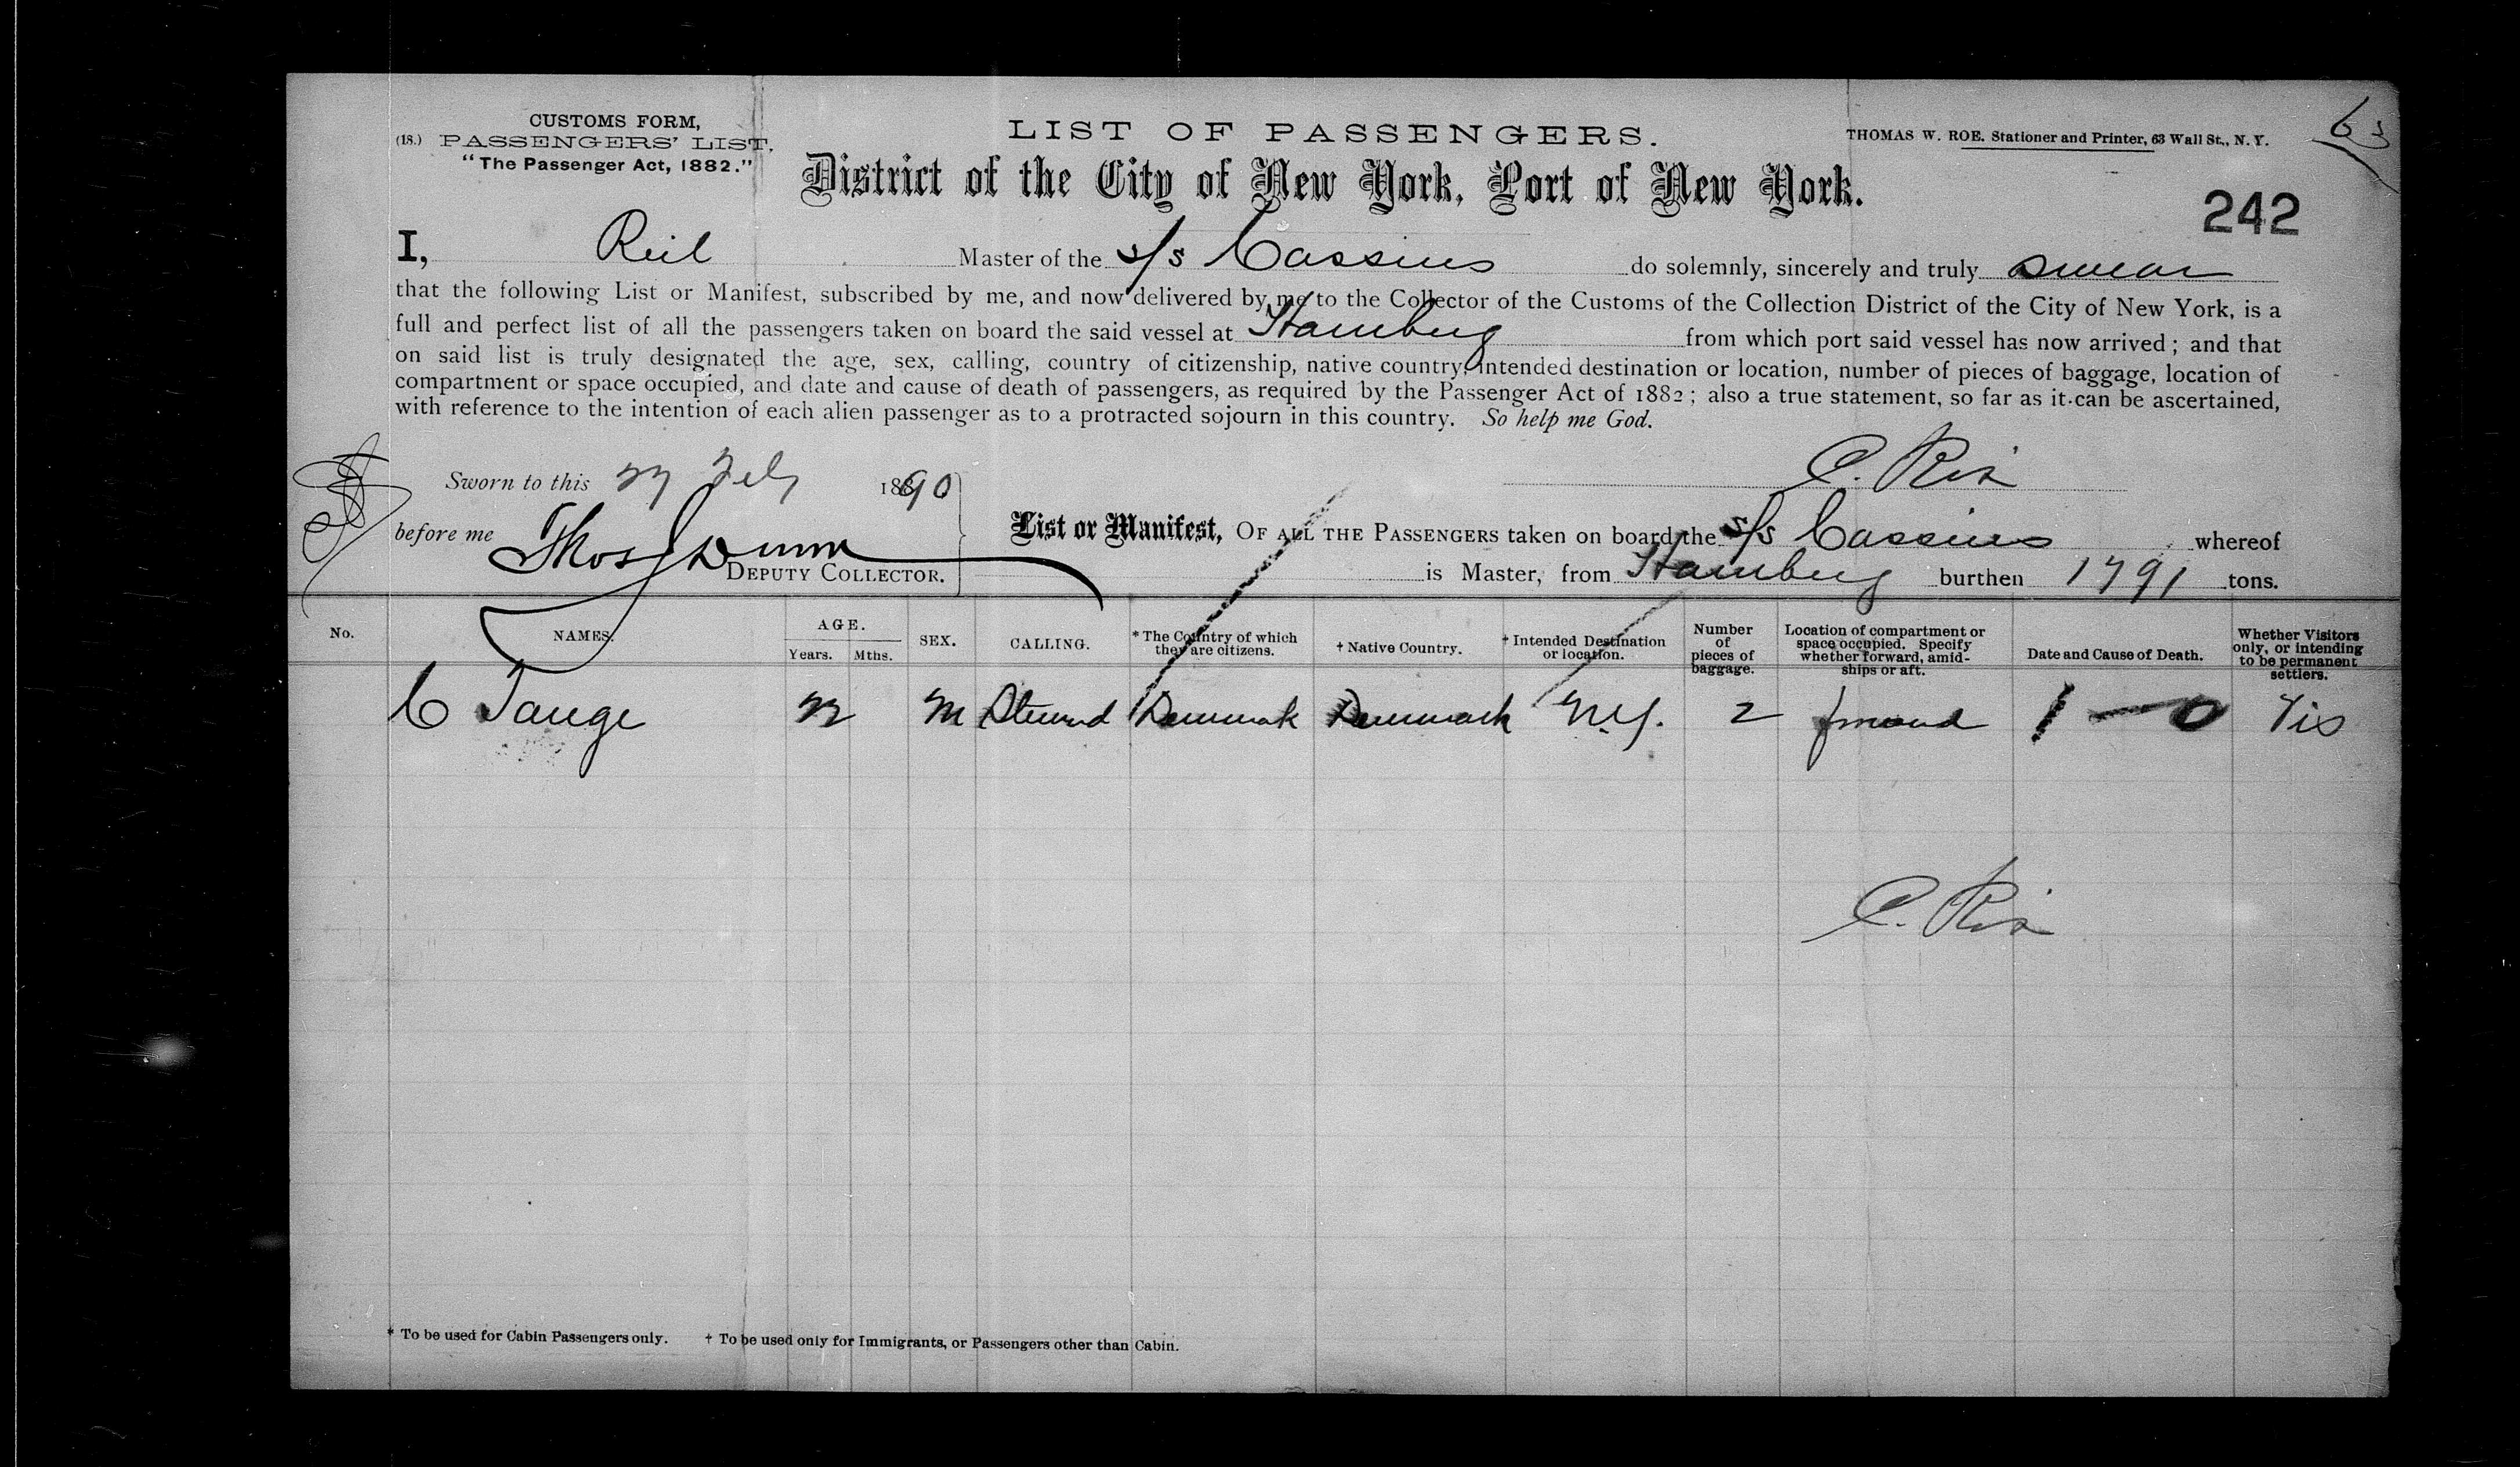 CUSTOMS FORM,
(18.) PASSENGERS' LIST,
"The Passenger Act, 1882."
LIST OF PASSENGERS.
THOMAS W. ROE. Stationer and Printer, 63 Wall St., N. Y.
District of the City of New York, Port of New York.
242
I, Reil Master of the s/s Cassius do solemnly, sincerely and truly swear
that the following List or Manifest, subscribed by me, and now delivered by me to the Collector of the Customs of the Collection District of the City of New York, is a
full and perfect list of all the passengers taken on board the said vessel at Hamburg from which port said vessel has now arrived; and that
on said list is truly designated the age, sex, calling, country of citizenship, native country, intended destination or location, number of pieces of baggage, location of
compartment or space occupied, and date and cause of death of passengers, as required by the Passenger Act of 1882; also a true statement, so far as it can be ascertained,
with reference to the intention of each alien passenger as to a protracted sojourn in this country. So help me God.
Sworn to this 27 Feby 1890
before me Thos Dunn
DEPUTY COLLECTOR.
List or Manifest, OF ALL THE PASSENGERS taken on board the s/s Cassius whereof
is Master, from Hamburg burthen 1791 tons.
No. NAMES. AGE. Years. Mths. SEX. CALLING. * The Country of which they are citizens. † Native Country. † Intended Destination or location. Number of pieces of baggage. Location of compartment or space occupied. Specify whether forward, amidships or aft. Date and Cause of Death. Whether Visitors only, or intending to be permanent settlers.
C Tange 22 M Steward Denmark Denmark N.Y. 2 forward 1 — 0 Vis
* To be used for Cabin Passengers only. † To be used only for Immigrants, or Passengers other than Cabin.